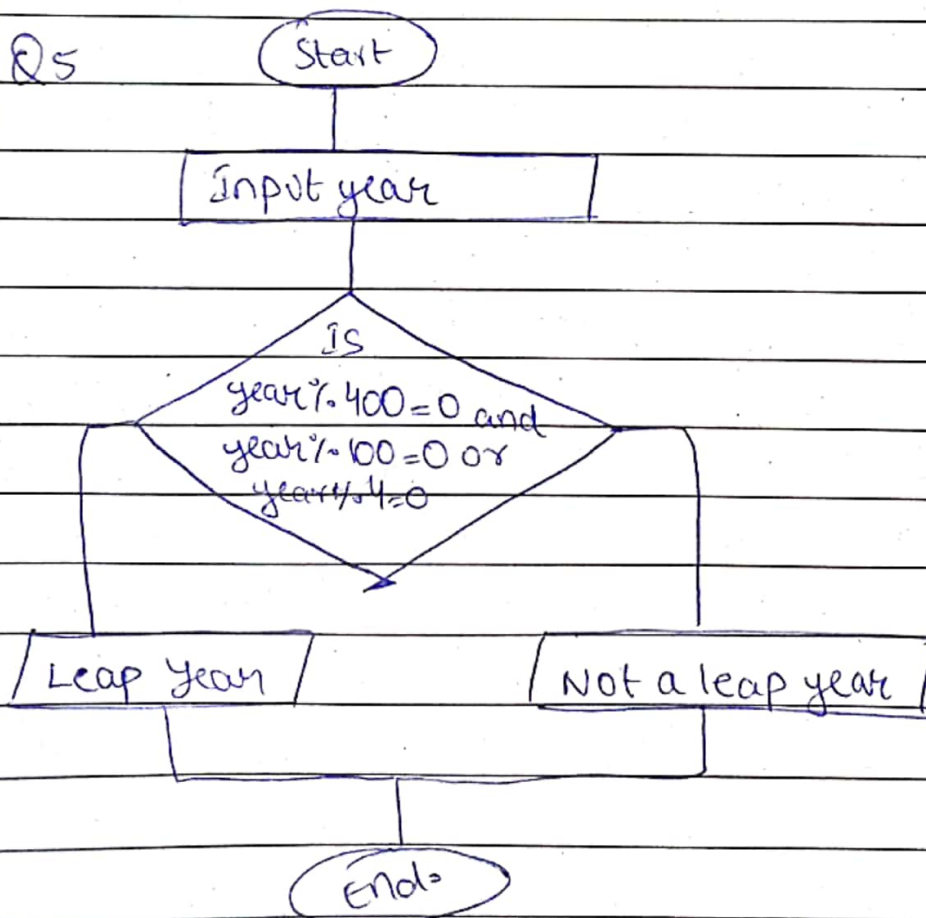 Q5
Start
Input year
Is
year % 400 = 0 and
year % 100 = 0 or
year % 4 = 0
Leap Year
Not a leap year
End